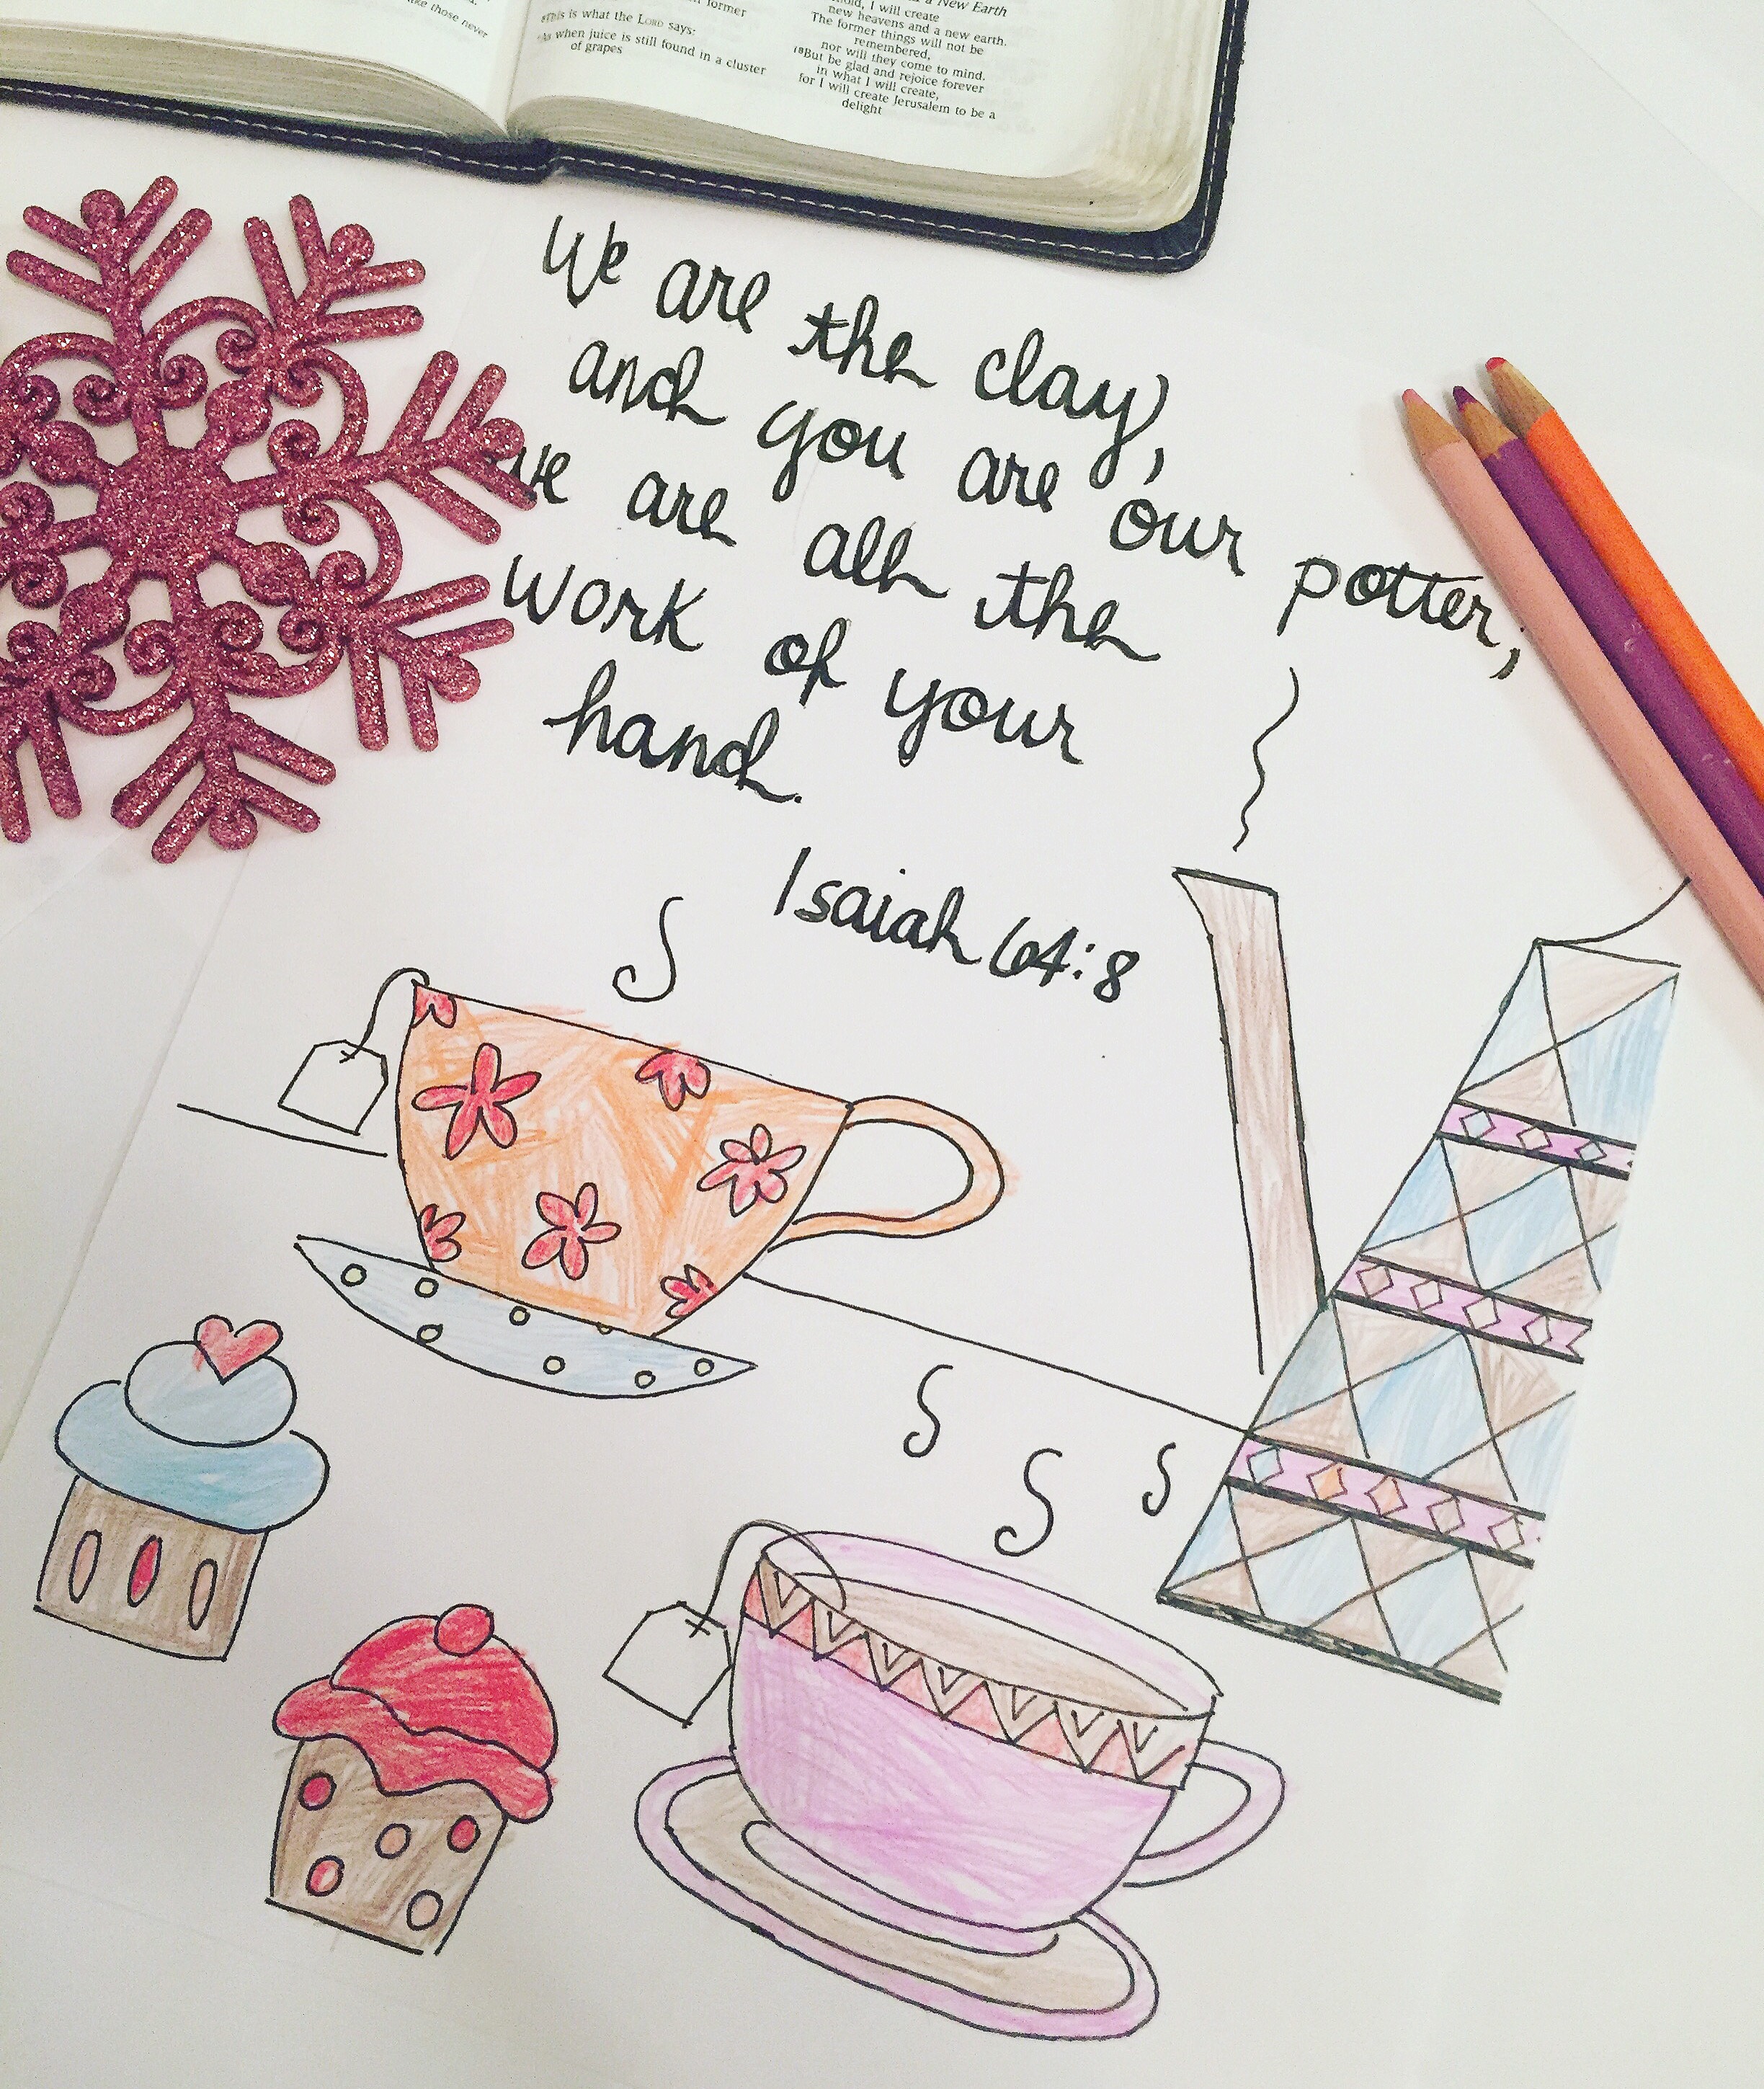 ke those never
former
This is what the LORD says:
As when juice is still found in a cluster
of grapes
a New Earth
I will create
new heavens and a new earth.
The former things will not be
remembered,
nor will they come to mind.
18But be glad and rejoice forever
in what I will create,
for I will create Jerusalem to be a
delight
We are the clay,
and you are our potter;
we are all the
work of your
hand.
Isaiah 64:8